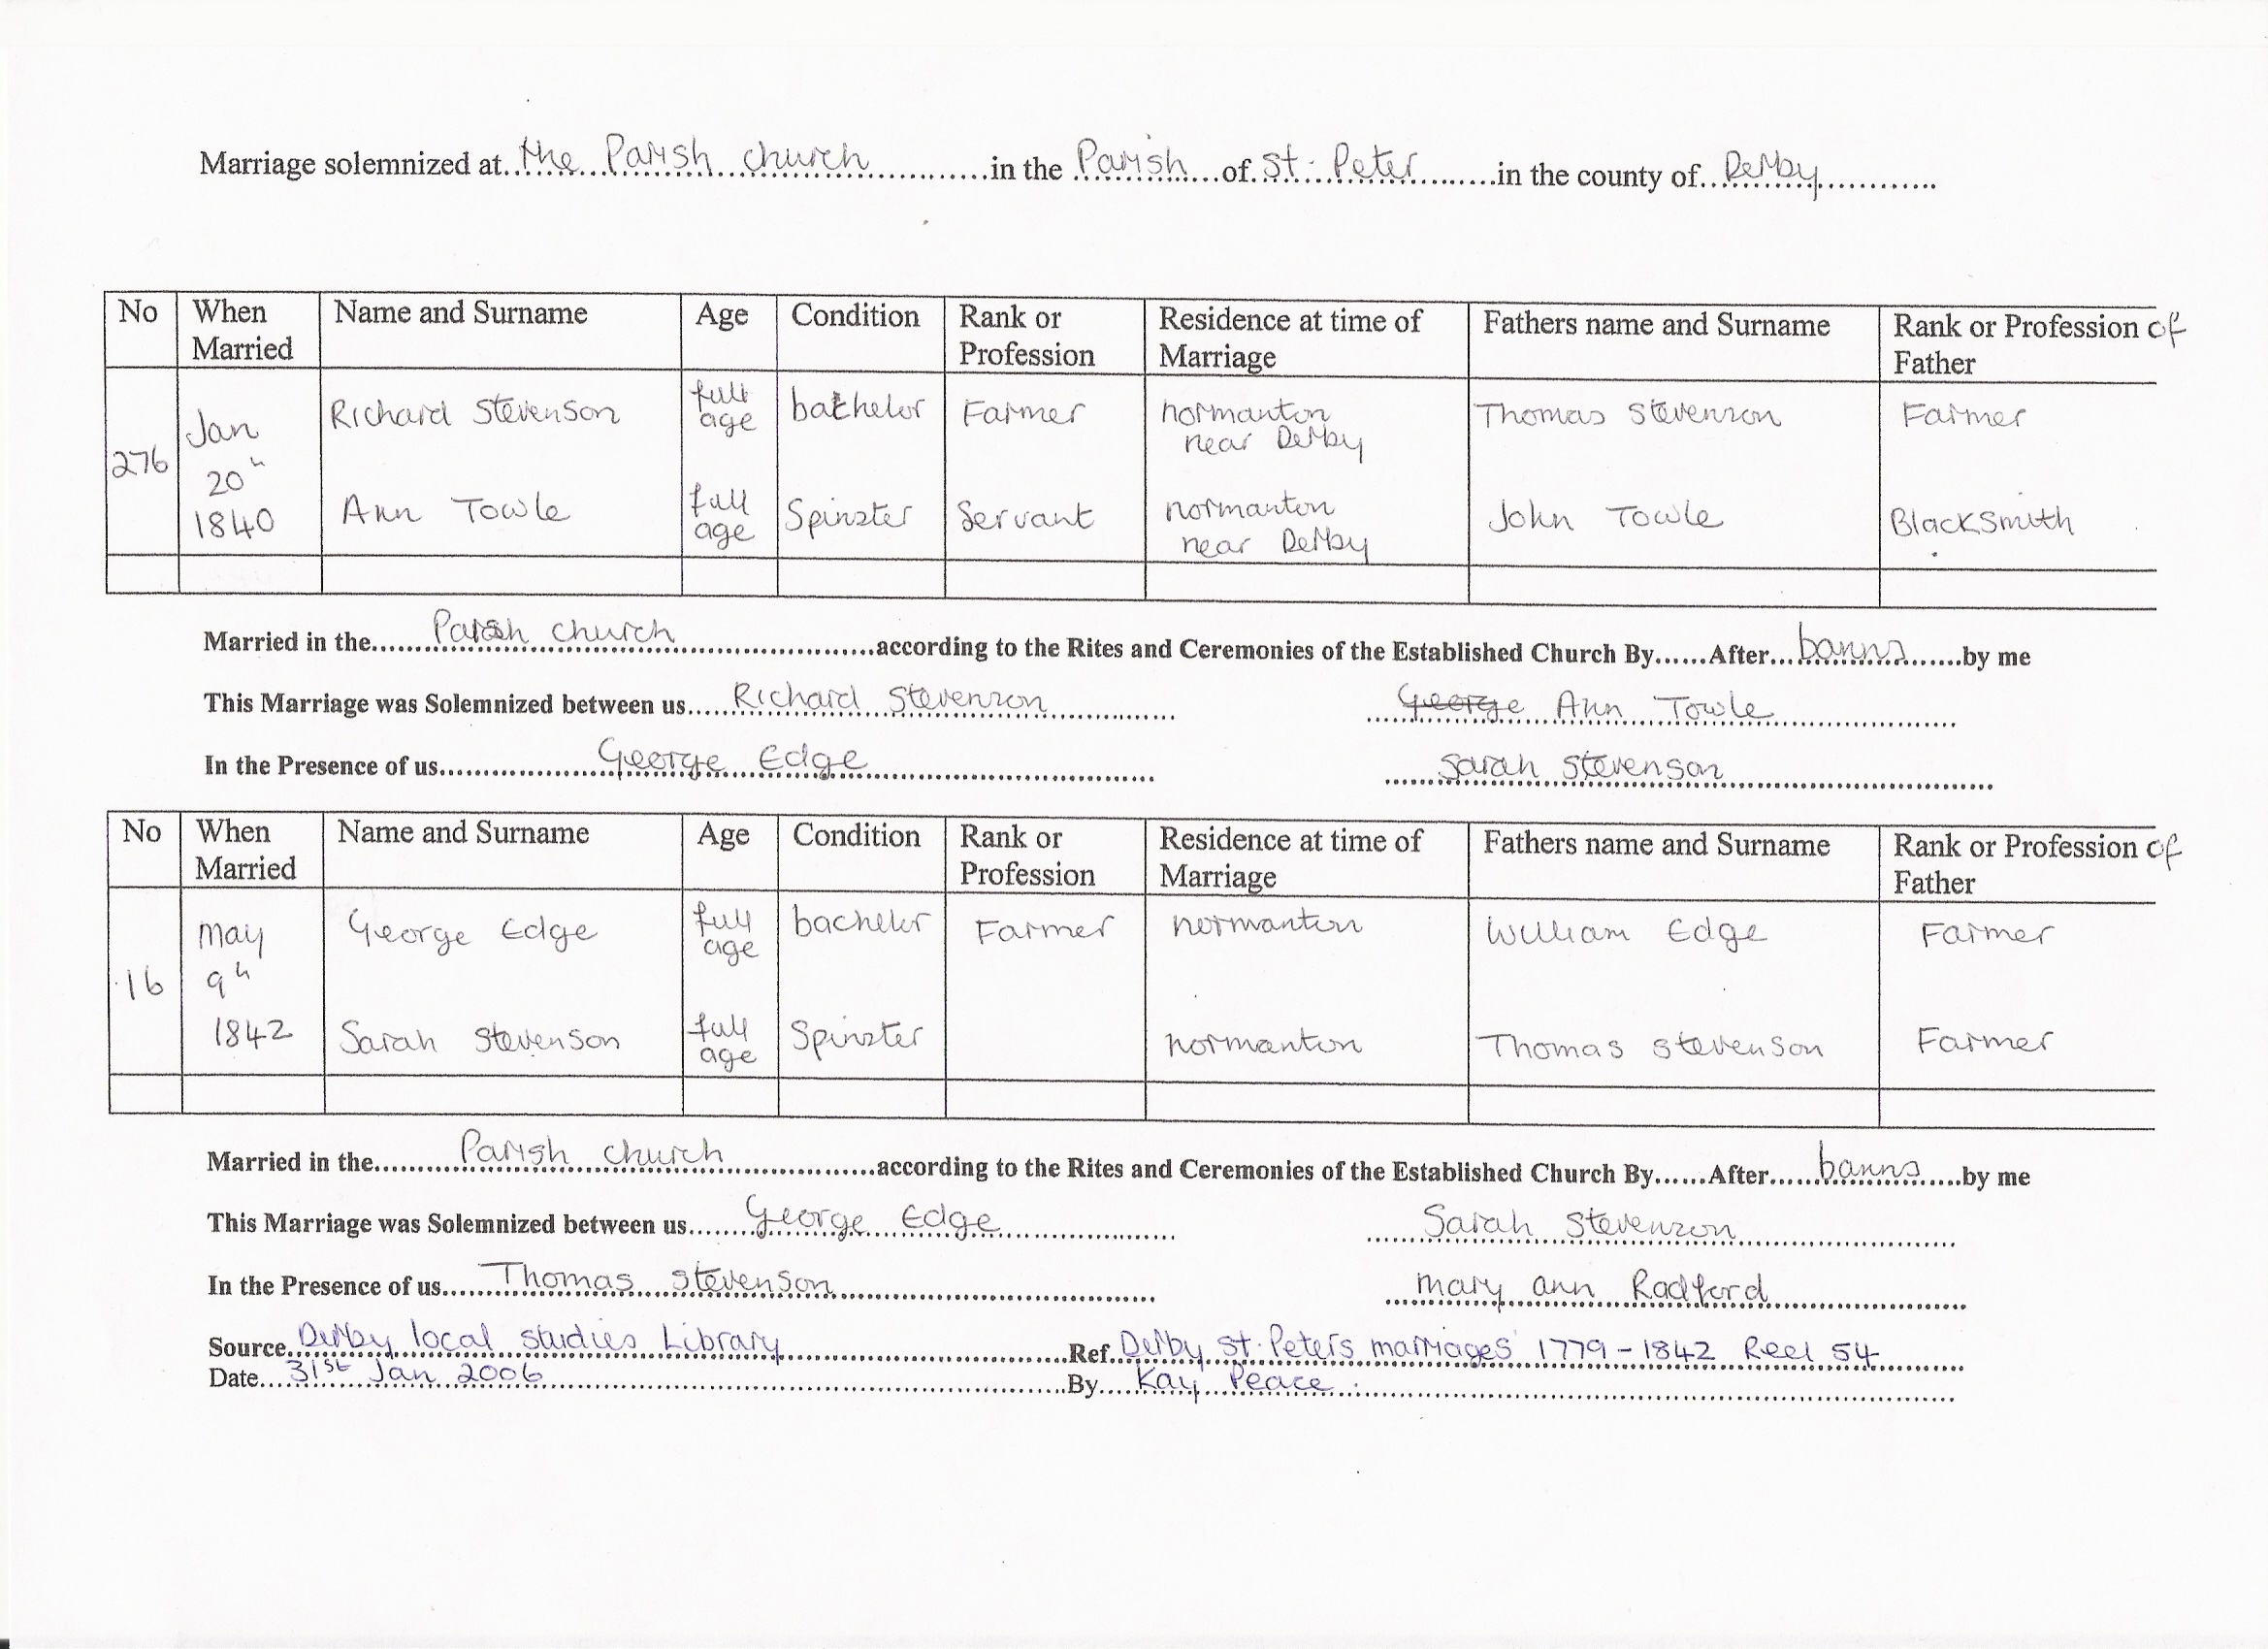 Marriage solemnized at...the Parish church...in the Parish...of St. Peter...in the county of...Derby...
No When Married Name and Surname Age Condition Rank or Profession Residence at time of Marriage Fathers name and Surname Rank or Profession of Father
276 Jan 20h 1840 Richard Stevenson full age bachelor Farmer normanton near Derby Thomas Stevenson Farmer
Ann Towle full age Spinster Servant normanton near Derby John Towle BlackSmith
Married in the...Parish church...according to the Rites and Ceremonies of the Established Church By......After...banns...by me
This Marriage was Solemnized between us...Richard Stevenson... ...George Ann Towle...
In the Presence of us...George Edge... ...Sarah Stevenson...
No When Married Name and Surname Age Condition Rank or Profession Residence at time of Marriage Fathers name and Surname Rank or Profession of Father
16 may 9h 1842 George Edge full age bachelor Farmer normanton William Edge Farmer
Sarah Stevenson full age Spinster normanton Thomas Stevenson Farmer
Married in the...Parish church...according to the Rites and Ceremonies of the Established Church By......After...banns...by me
This Marriage was Solemnized between us...George Edge... ...Sarah Stevenson...
In the Presence of us...Thomas Stevenson... ...mary ann Radford...
Source...Derby local studies Library...Ref...Derby St. Peters marriages 1779-1842 Reel 54...
Date...31st Jan 2006...By...Kay Peace...